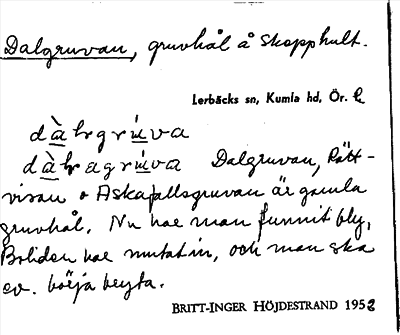 Dalgruvan, gruvhål å Skopphult.
Lerbäcks sn, Kumla hd, Ör. l.
dàlrgrúva
dàlragrúva Dalgruvan, Rätt-
visan o Askafallsgruvan är gamla
gruvhål. Nu har man funnit bly,
Boliden har mutat in, och man ska
ev. börja bryta.
BRITT-INGER HÖJDESTRAND 1952